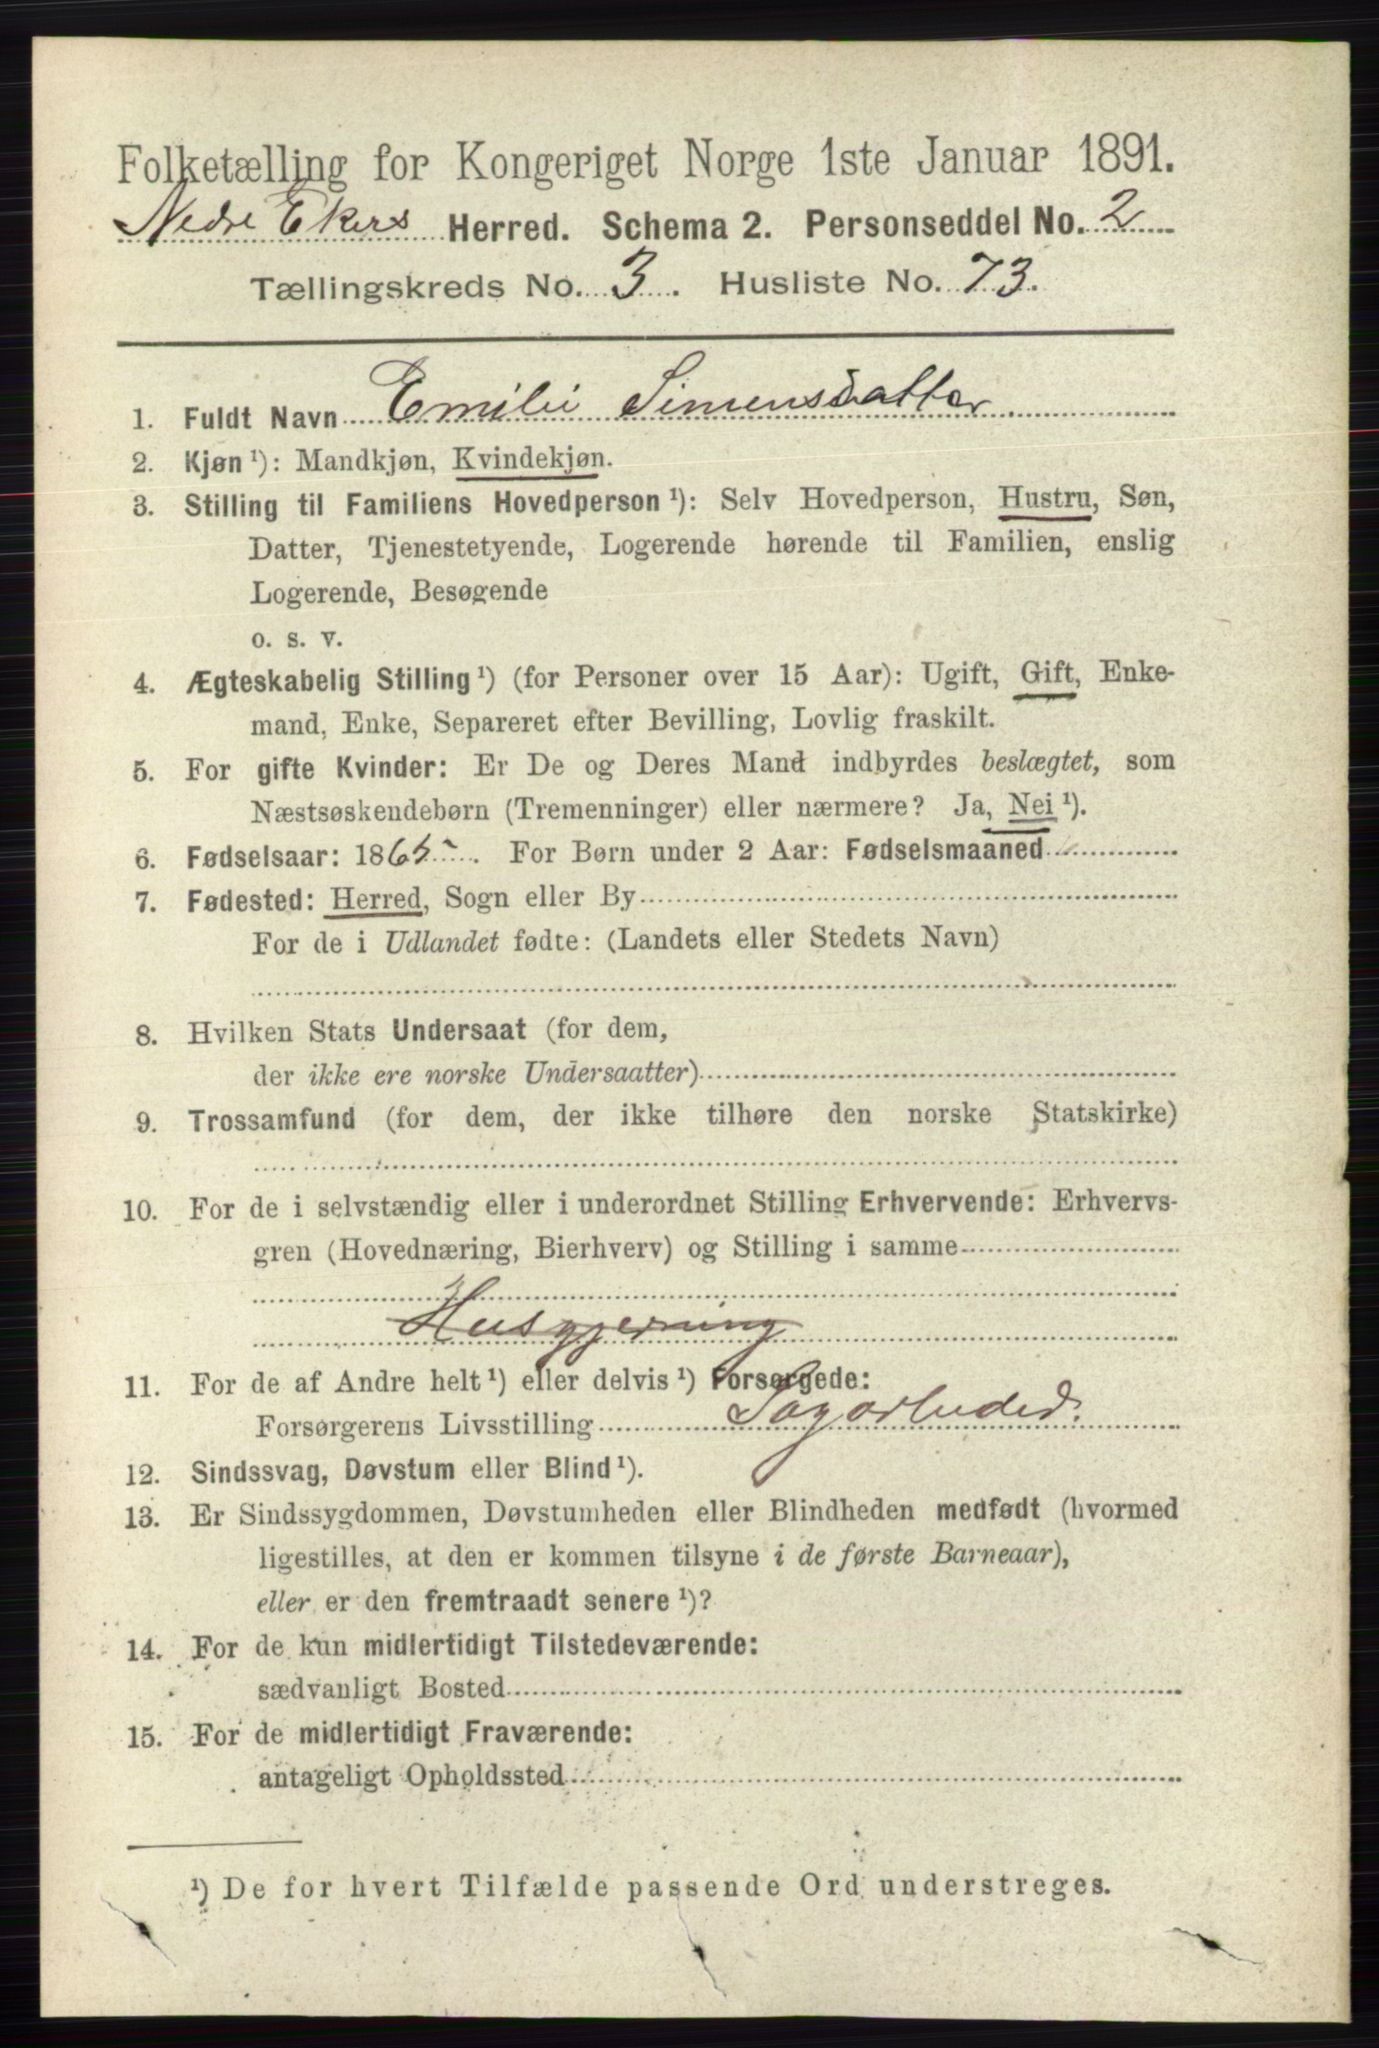 Folketælling for Kongeriget Norge 1ste Januar 1891.
Nedre Ekers Herred. Schema 2. Personseddel No. 2
Tællingskreds No. 3. Husliste No. 73.
1. Fuldt Navn Emilie Simensdatter
2. Kjøn ¹): Mandkjøn, Kvindekjøn.
3. Stilling til Familiens Hovedperson ¹): Selv Hovedperson, Hustru, Søn,
Datter, Tjenestetyende, Logerende hørende til Familien, enslig
Logerende, Besøgende
o. s. v.
4. Ægteskabelig Stilling ¹) (for Personer over 15 Aar): Ugift, Gift, Enke-
mand, Enke, Separeret efter Bevilling, Lovlig fraskilt.
5. For gifte Kvinder: Er De og Deres Mand indbyrdes beslægtet, som
Næstsøskendebørn (Tremenninger) eller nærmere? Ja, Nei ¹).
6. Fødselsaar: 1865. For Børn under 2 Aar: Fødselsmaaned
7. Fødested: Herred, Sogn eller By
For de i Udlandet fødte: (Landets eller Stedets Navn)
8. Hvilken Stats Undersaat (for dem,
der ikke ere norske Undersaatter)
9. Trossamfund (for dem, der ikke tilhøre den norske Statskirke)
10. For de i selvstændig eller i underordnet Stilling Erhvervende: Erhvervs-
gren (Hovednæring, Bierhverv) og Stilling i samme
Husgjerning
11. For de af Andre helt ¹) eller delvis ¹) Forsørgede:
Forsørgerens Livsstilling Sagarbeider.
12. Sindssvag, Døvstum eller Blind ¹).
13. Er Sindssygdommen, Døvstumheden eller Blindheden medfødt (hvormed
ligestilles, at den er kommen tilsyne i de første Barneaar),
eller er den fremtraadt senere ¹)?
14. For de kun midlertidigt Tilstedeværende:
sædvanligt Bosted
15. For de midlertidigt Fraværende:
antageligt Opholdssted
¹) De for hvert Tilfælde passende Ord understreges.